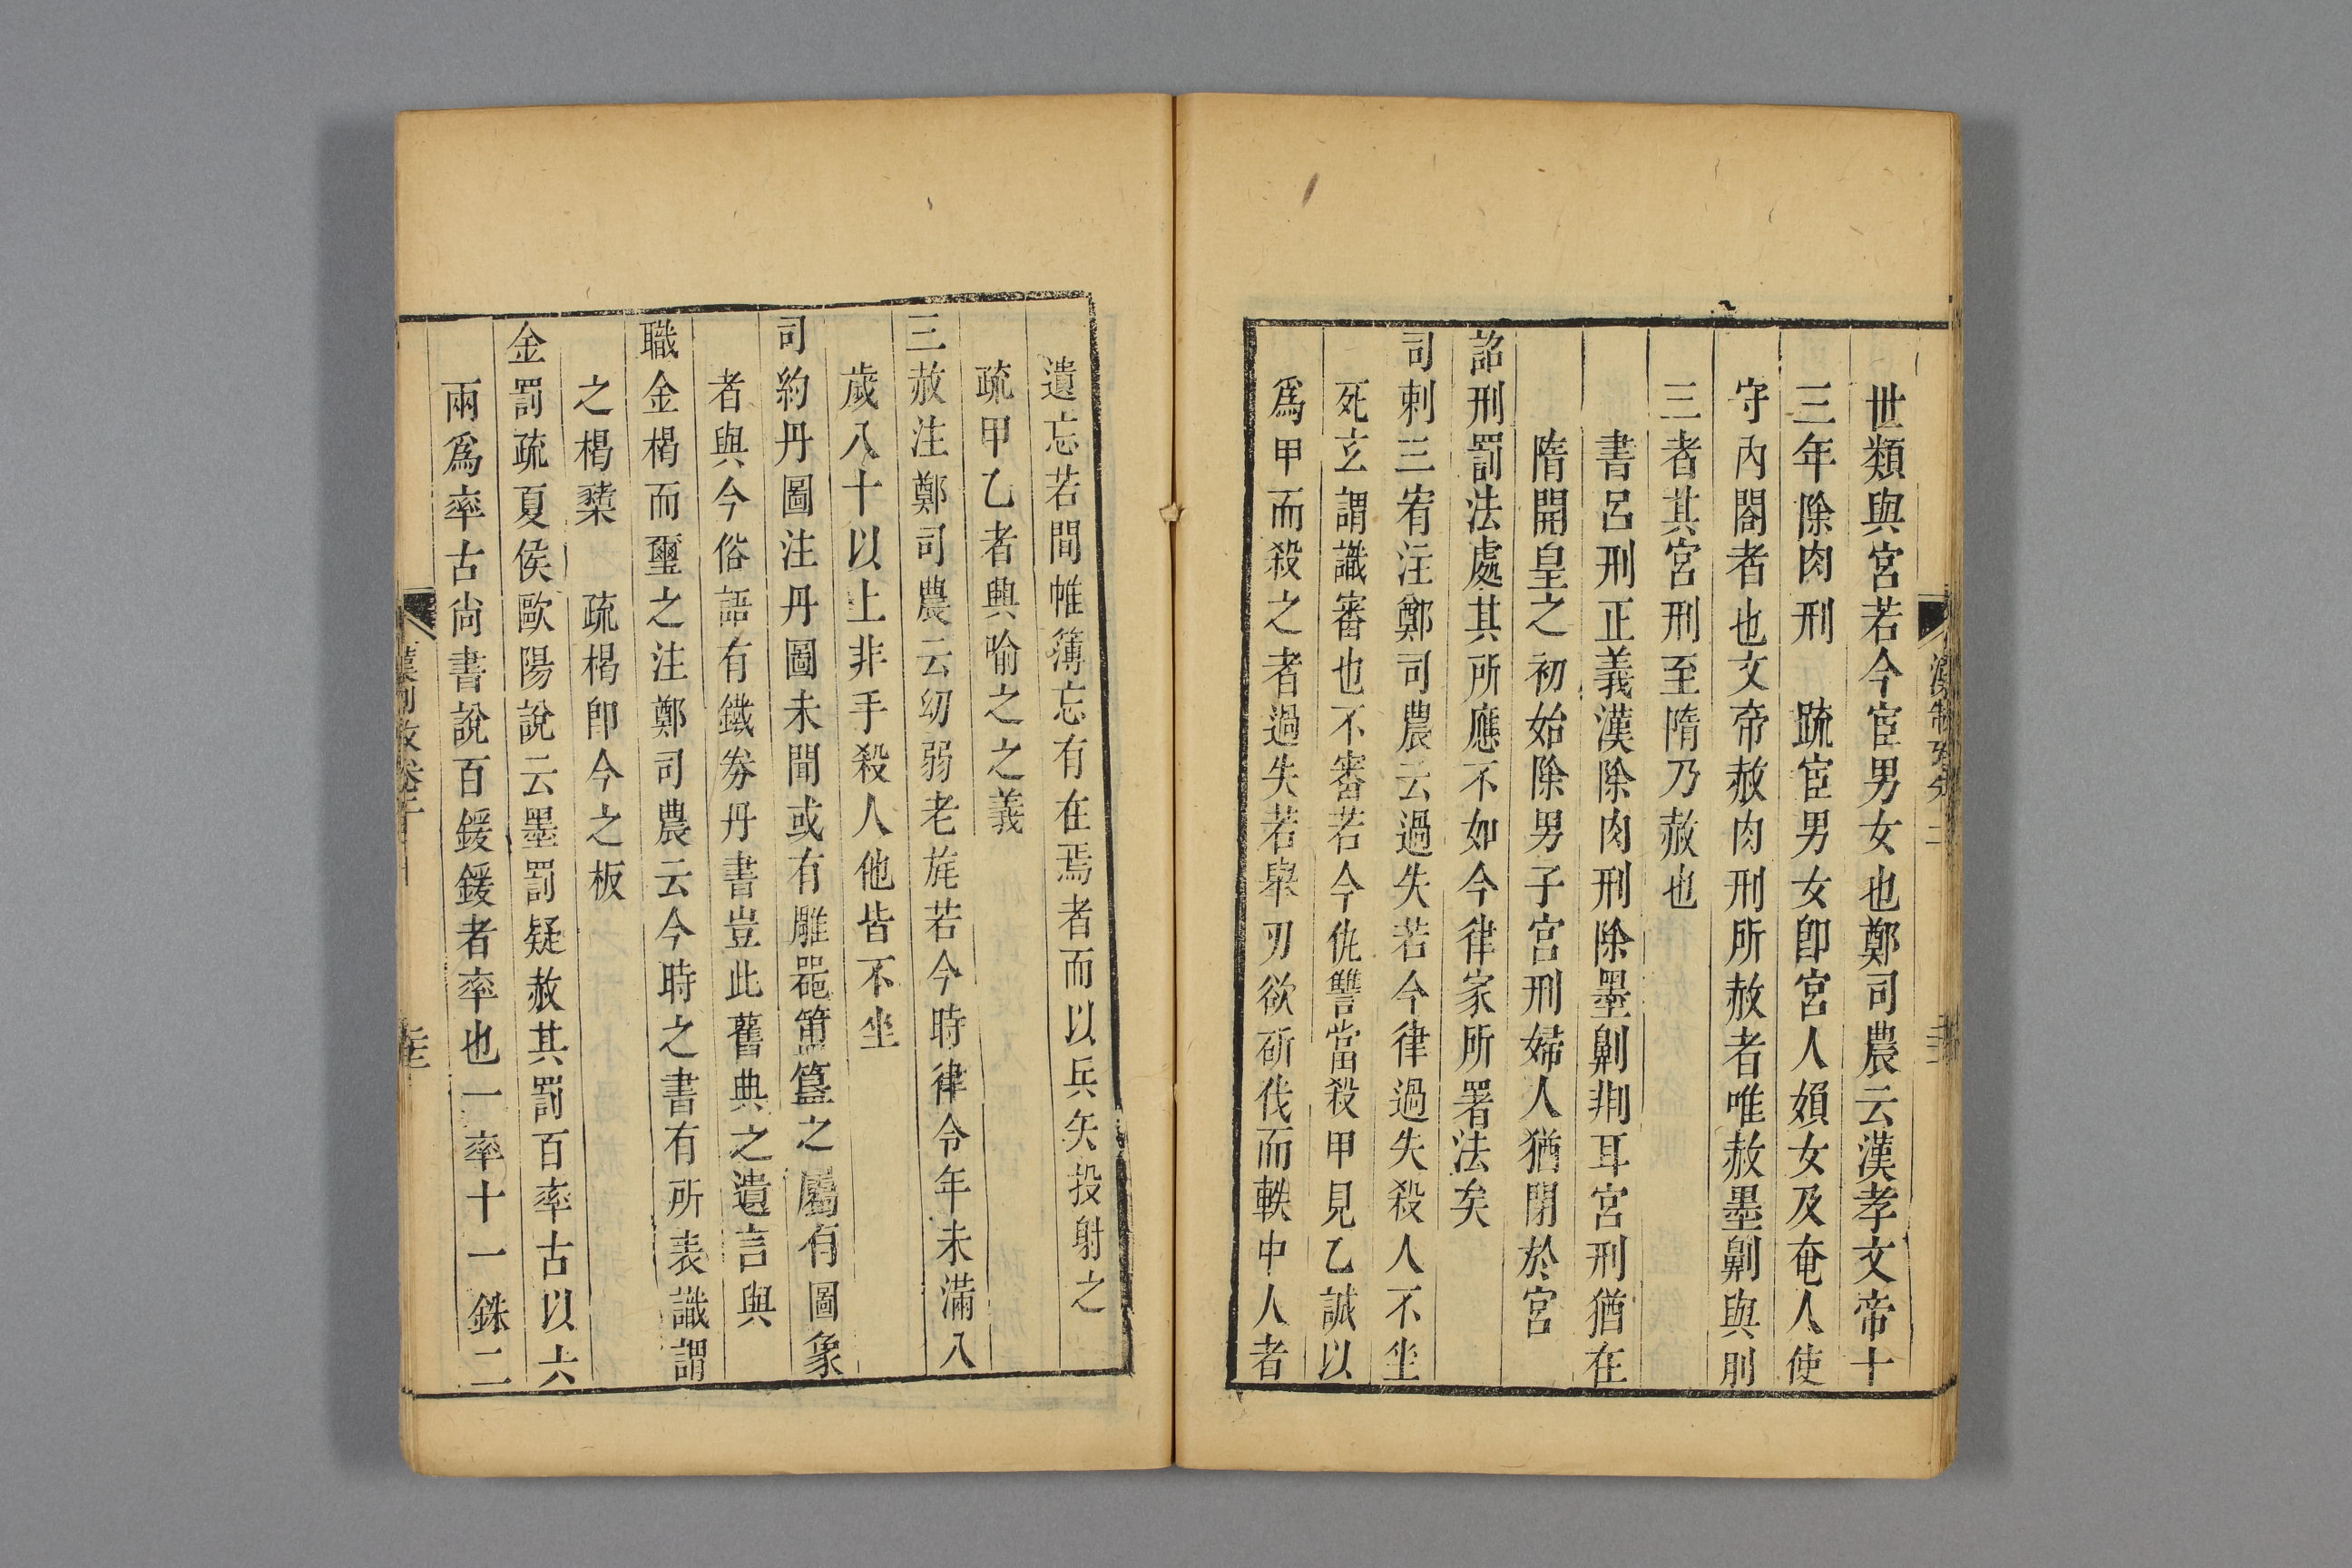 世類與宮若今宦男女也鄭司農云漢孝文帝十
三年除肉刑　疏宦男女卽宮人婦女及奄人使
守內閤者也文帝赦肉刑所赦者唯赦墨劓與刖
三者其宮刑至隋乃赦也
書呂刑正義漢除肉刑除墨劓剕耳宮刑猶在
隋開皇之初始除男子宮刑婦人猶閉於宮
詔刑罰法處其所應不如今律家所署法矣
司刺三宥注鄭司農云過失若今律過失殺人不坐
死玄謂識審也不審若今仇讐當殺甲見乙誠以
爲甲而殺之者過失若舉刃欲斫伐而軼中人者
遺忘若間帷簿忘有在焉者而以兵矢投射之
疏甲乙者興喻之之義
三赦注鄭司農云幼弱老旄若今時律令年未滿八
歲八十以上非手殺人他皆不坐
司約丹圖注丹圖未聞或有雕器簠簋之屬有圖象
者與今俗語有鐵券丹書豈此舊典之遺言與
職金楬而璽之注鄭司農云今時之書有所表識謂
之楬櫫　疏楬卽今之板
金罰疏夏侯歐陽說云墨罰疑赦其罰百率古以六
兩爲率古尚書說百鍰鍰者率也一率十一銖二